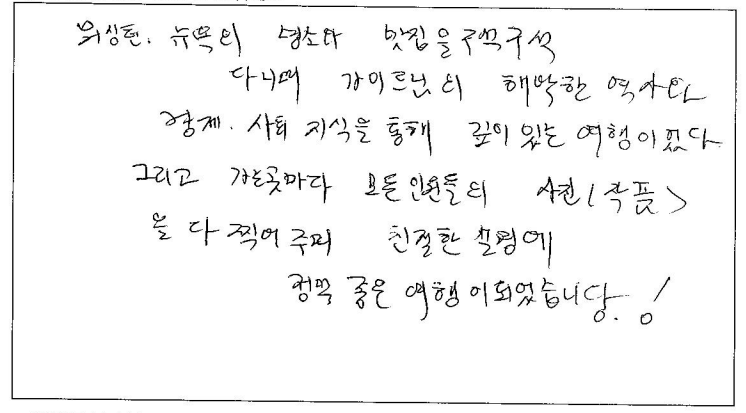 워싱턴. 뉴욕의 명소와 맛집을 구석구석
다니며 가이드님의 해박한 역사와
경제. 사회 지식을 통해 깊이 있는 여행이었다
그리고 가는곳마다 모든 인원들의 사진(작품)
을 다 찍어 주며 친절한 설명에
정말 좋은 여행이 되었습니당.!